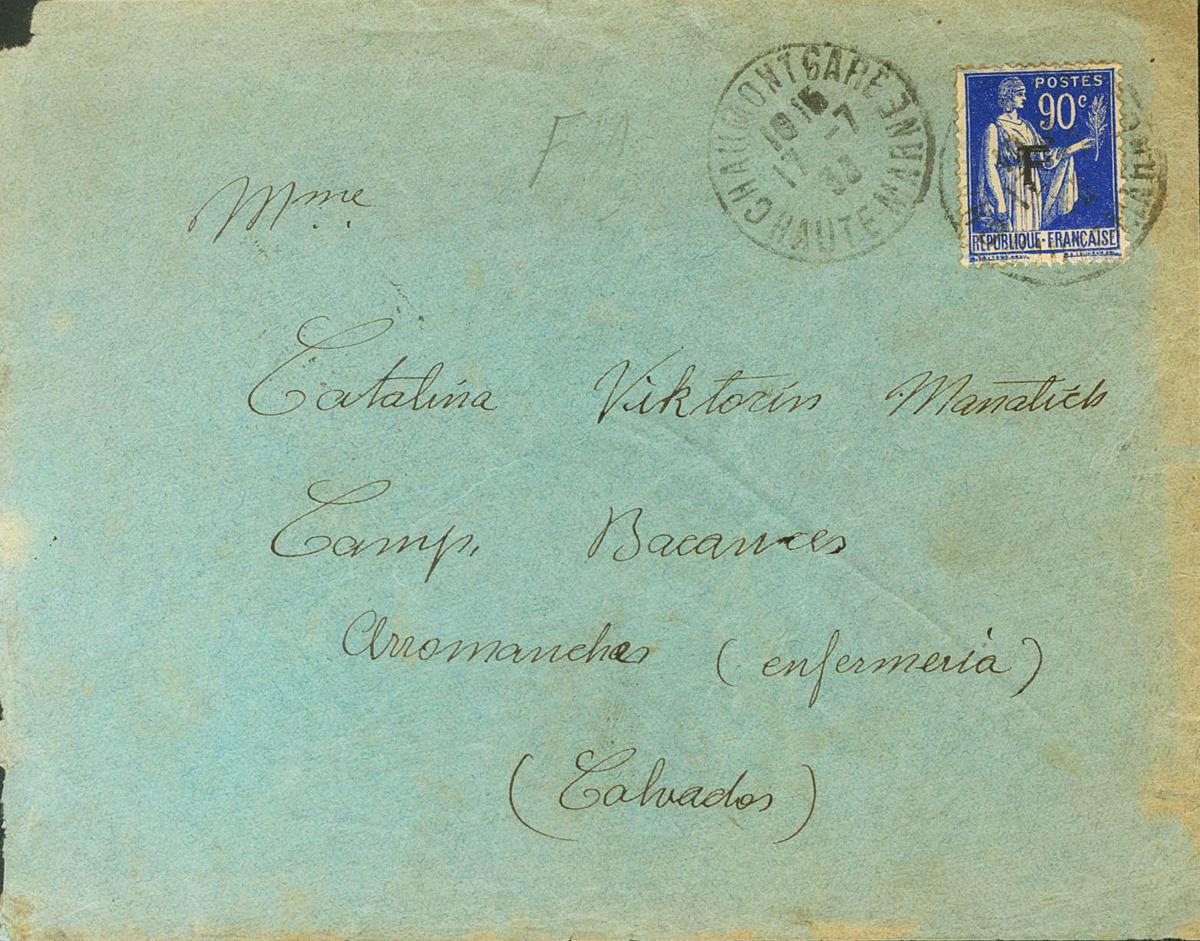 CHAUMONT GARE
HAUTE MARNE
1915
17 - 7
POSTES
90c
F
REPUBLIQUE FRANÇAISE
Mme
Catalina Viktorin
Camp. Bacances
Arromanches (enfermeria)
(Calvados)